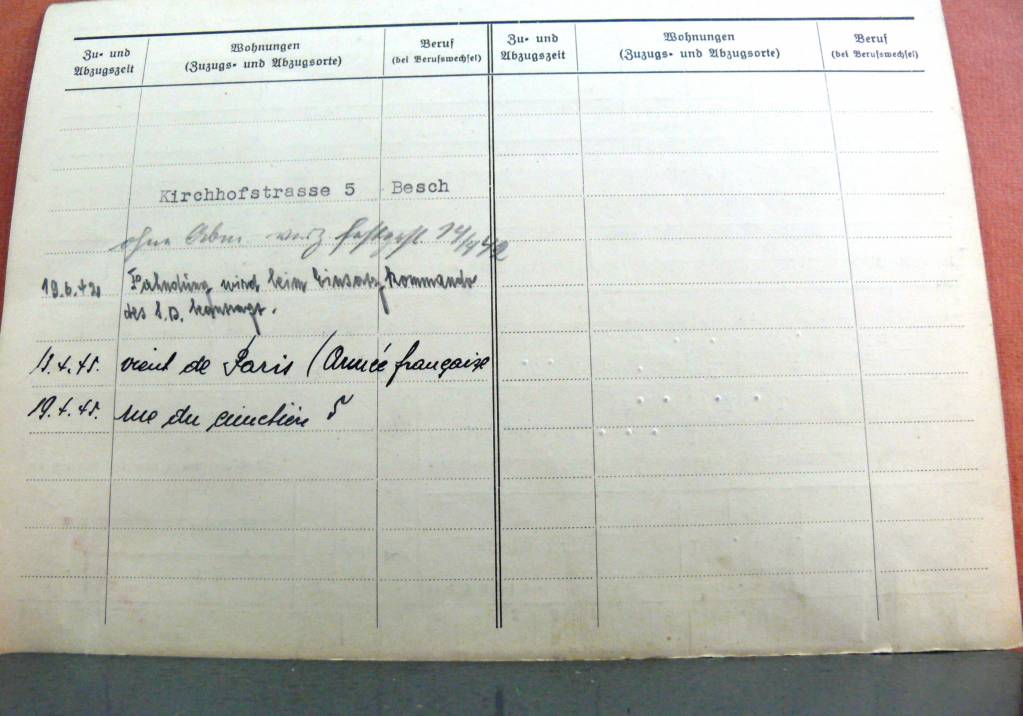 Zu- und
Abzugszeit
Wohnungen
(Zuzugs- und Abzugsorte)
Beruf
(bei Berufswechsel)
Zu- und
Abzugszeit
Wohnungen
(Zuzugs- und Abzugsorte)
Beruf
(bei Berufswechsel)
Kirchhofstrasse 5 Besch
ohne verz
19.6.42 Fahndung wird beim Einsatz Kommando
des S.D. beantragt.
18.4.45. vient de Paris (Armée française
19.4.45. rue du cimetière 5